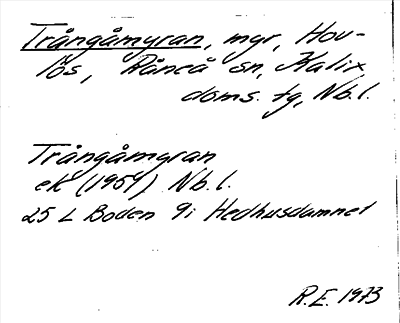 Trångåmyran, myr, Hov-
lös, Råneå sn, Kalix
doms. tg, Nb.l.
Trångåmyran
ek (1959) Nb.l.
25 L Boden 9i Hedhusdamnet
R.E. 1973